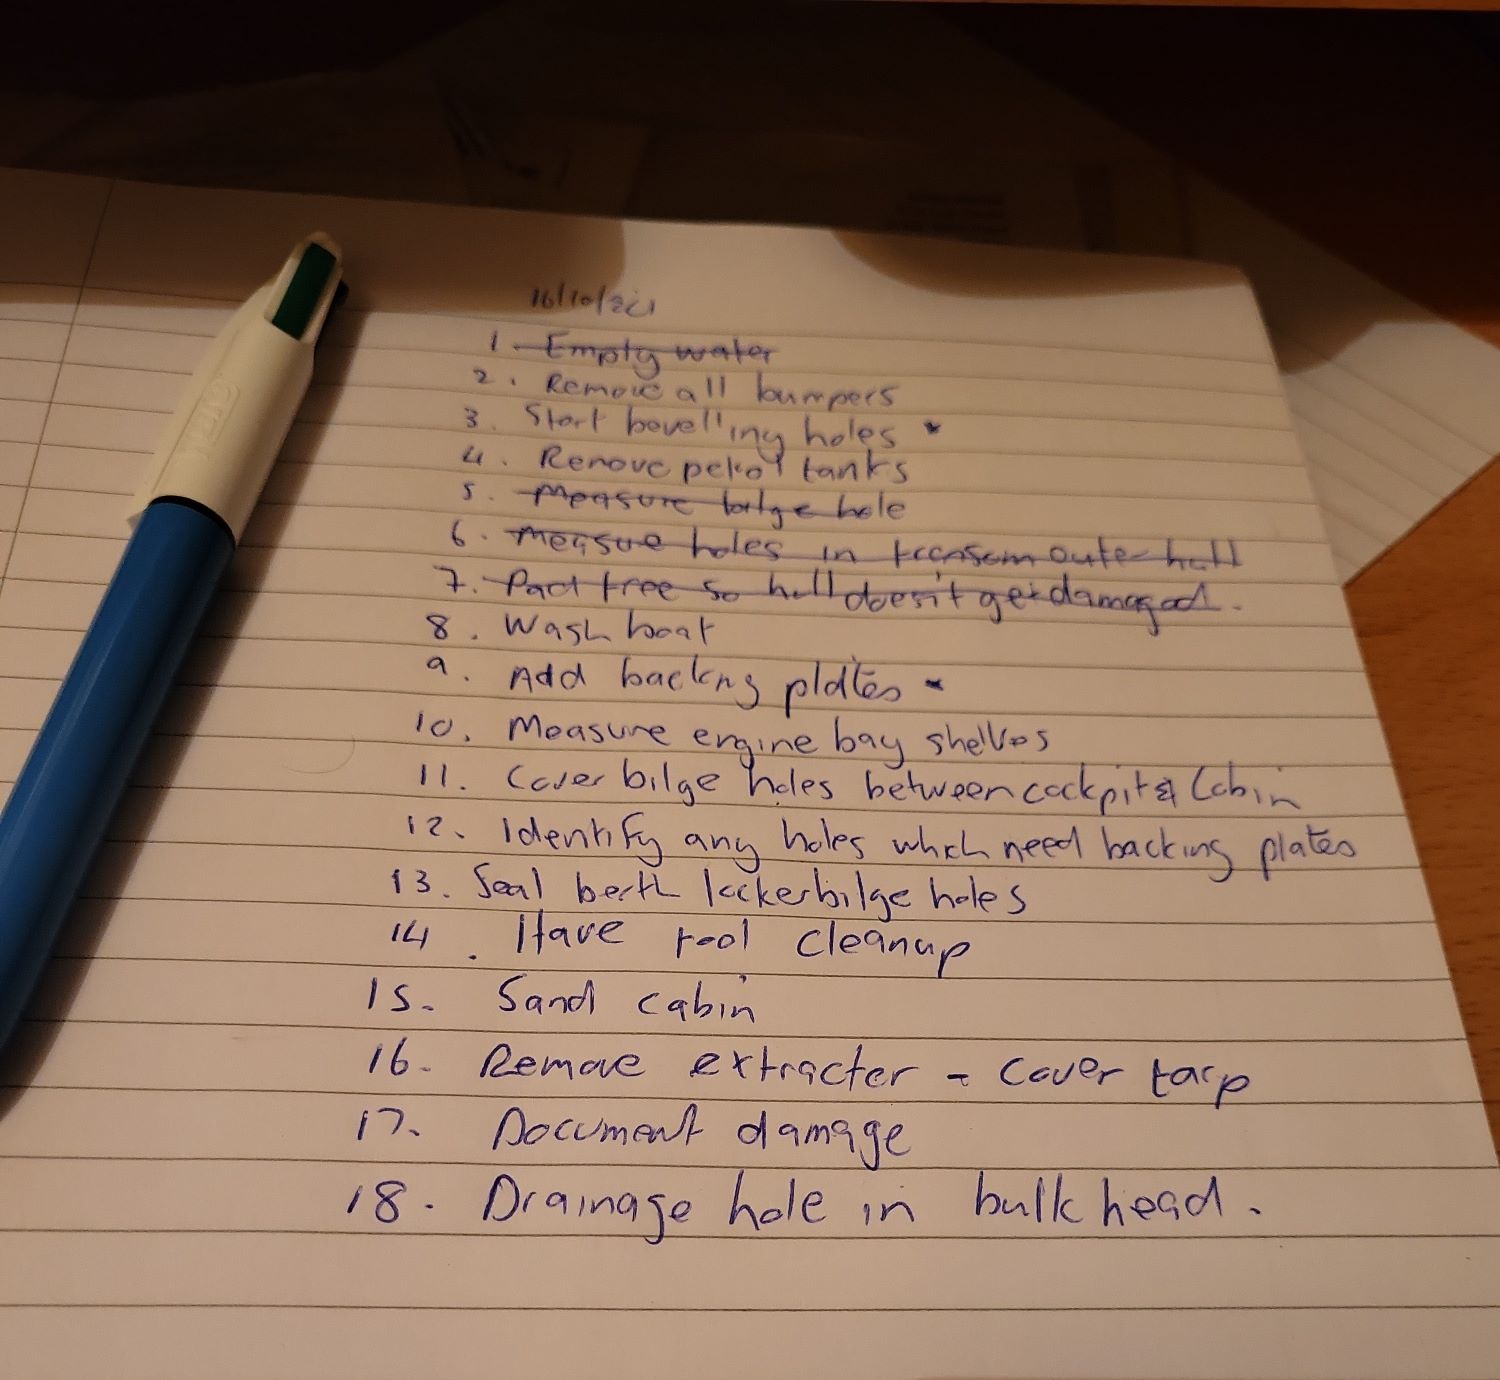 16/10/21
1. Empty water
2. Remove all bumpers
3. Start bevelling holes *
4. Remove petrol tanks
5. Measure bilge hole
6. Measure holes in transom outer hull
7. Pad tree so hull doesn't get damaged.
8. Wash boat
9. Add backing plates *
10. Measure engine bay shelves
11. Cover bilge holes between cockpit & Cabin
12. Identify any holes which need backing plates
13. Seal berth locker bilge holes
14. Have tool cleanup
15. Sand cabin
16. Remove extracter - cover tarp
17. Document damage
18. Drainage hole in bulkhead.